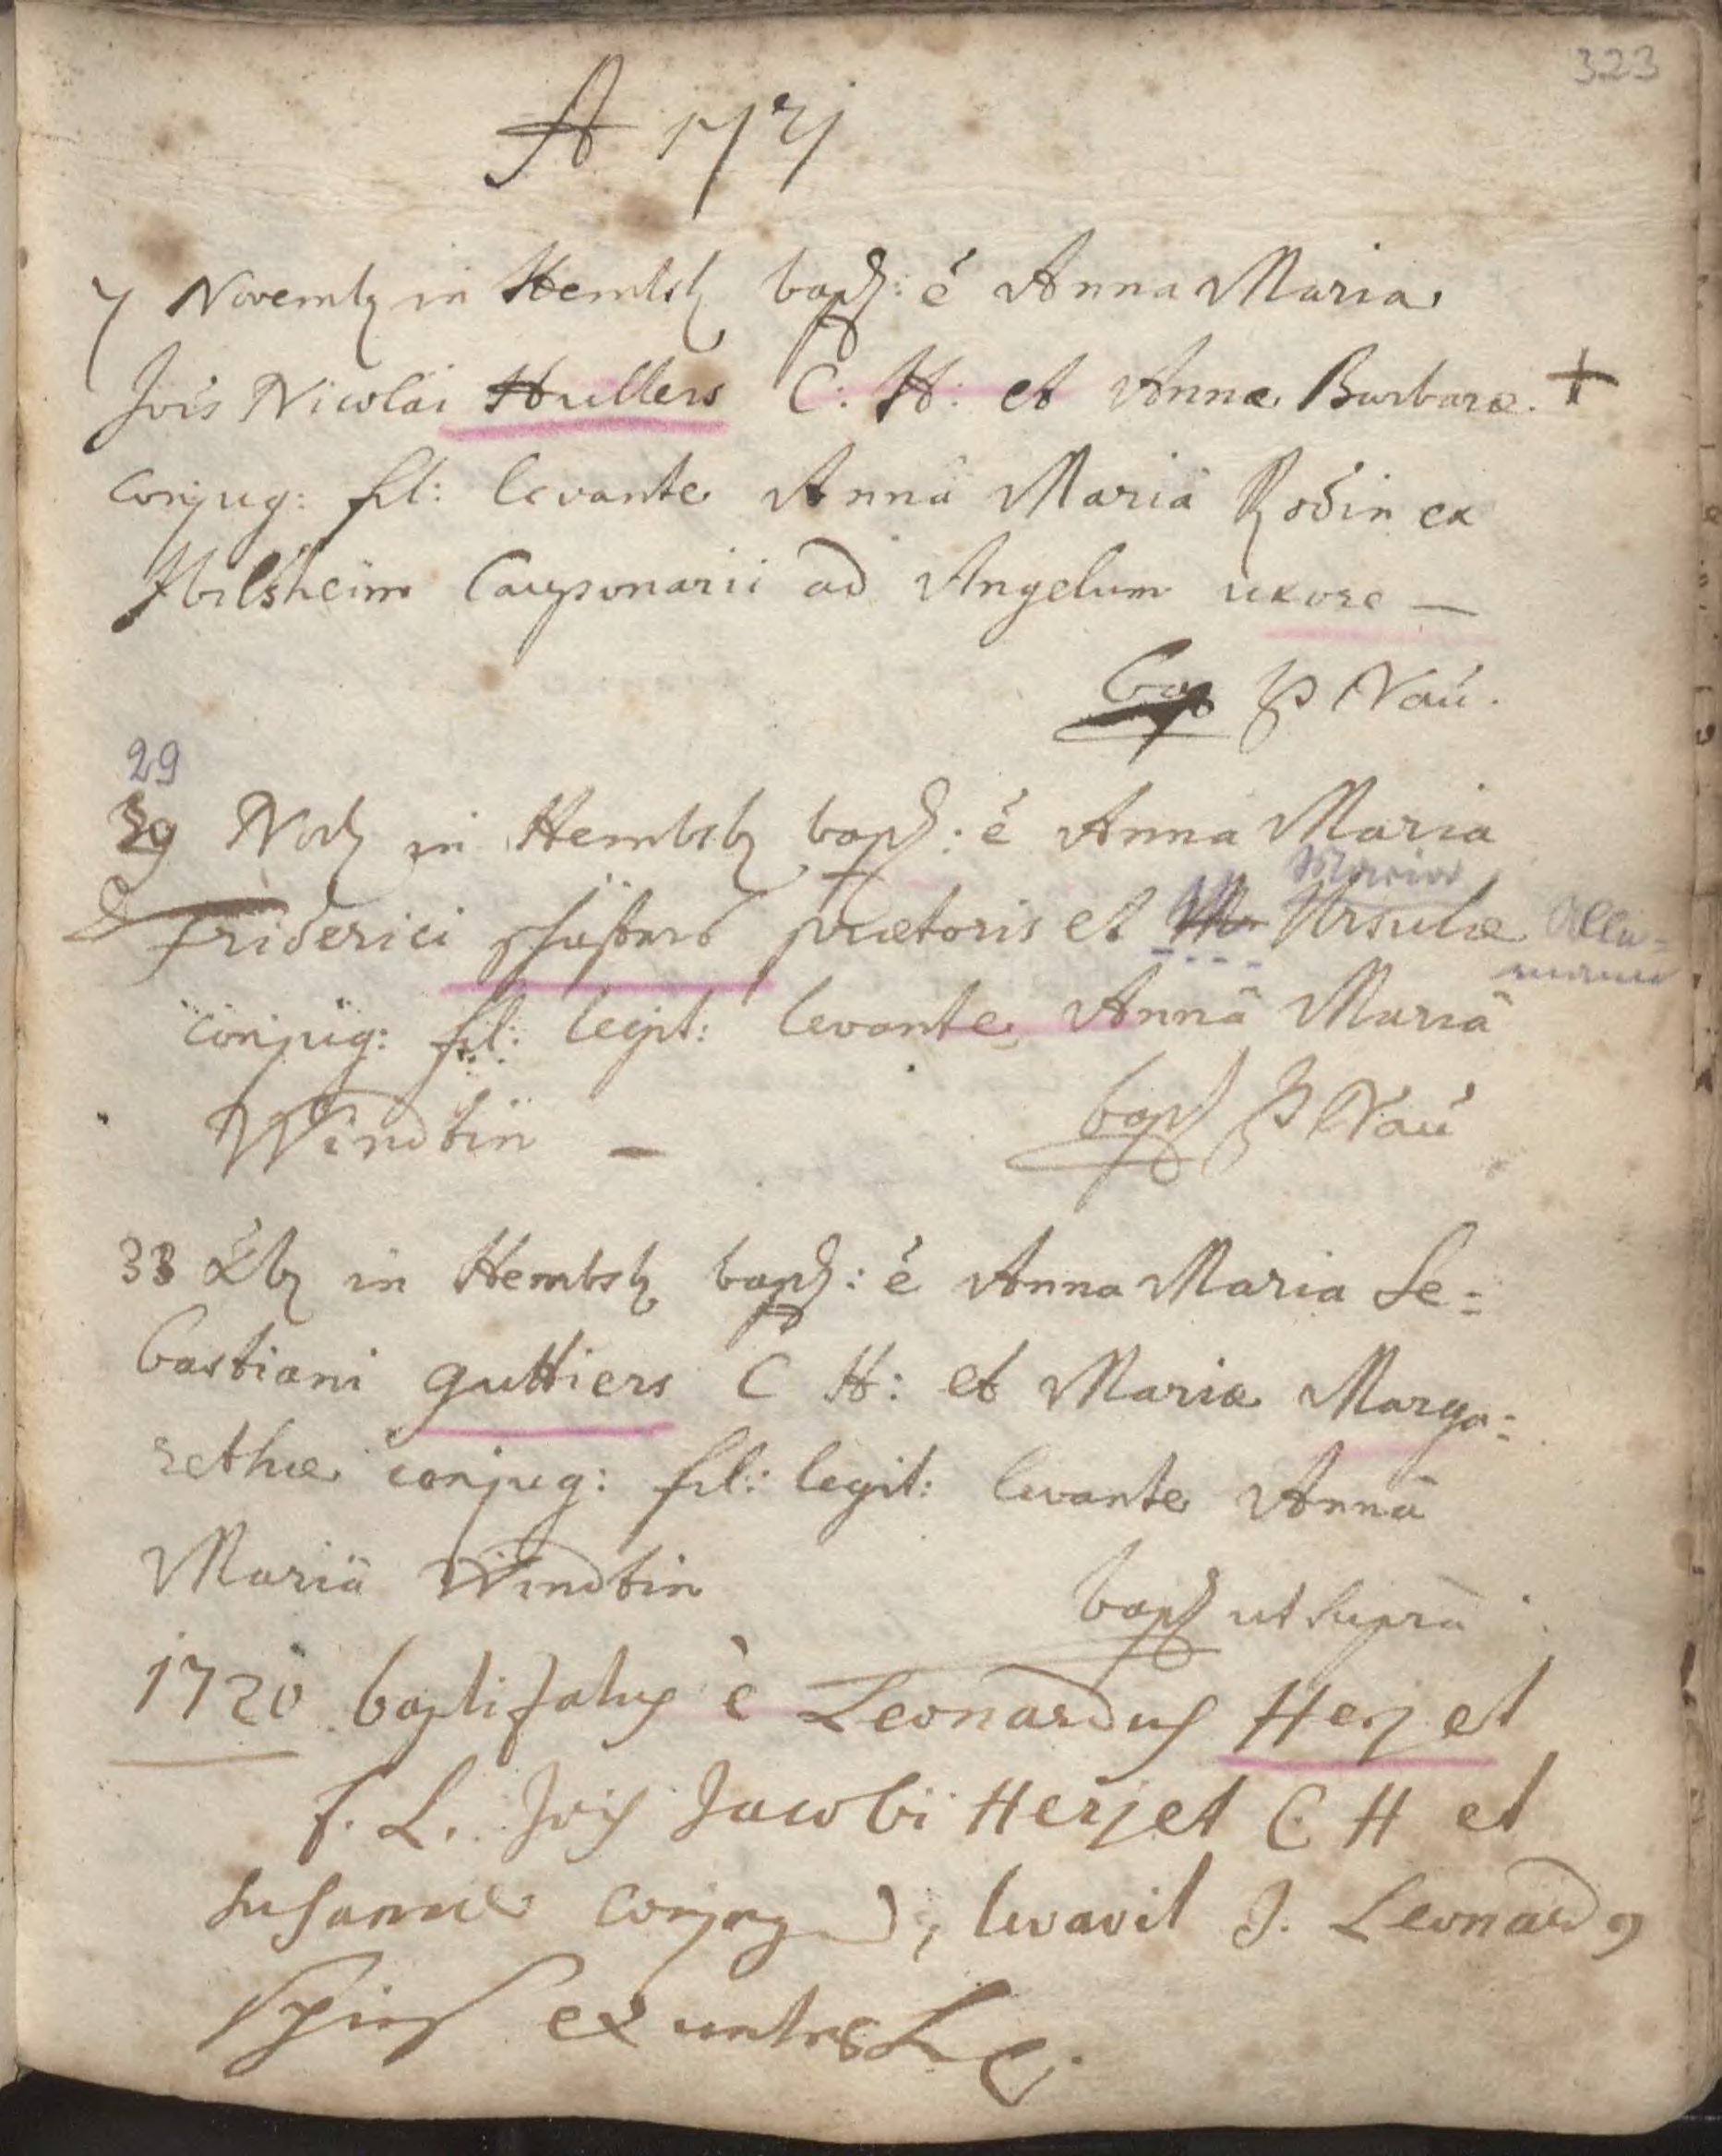 323
A 1721
7 Novemb in Hembsb bapt: ē Anna Maria
Jois Nicolai Hullers C: H: et Annæ Barbaræ. +
conjug: fil: levante Annâ Mariâ Rodin ex
Hilsheim Cauponarii ad Angelum uxore —
Bap P Naú.
29
29 Nob in Hembsb bapt: ē Anna Maria
Maria
Friderici prætoris et Ursulæ
conjug: fil: legit: levante Annâ Mariâ
Windtin — bapt P Naú
Xb in Hembsb bapt: ē Anna Maria Se=
bastiani guttiers C H: et Mariæ Marga=
rethæ conjug: fil: legit: levante Annâ
Mariâ Windtin bapt ut supra
1720 baptisatus ē Leonardus Herjet
f. L. Jois Jacobi Herjet C H et
susannæ conjug, levavit J. Leonardg
ex